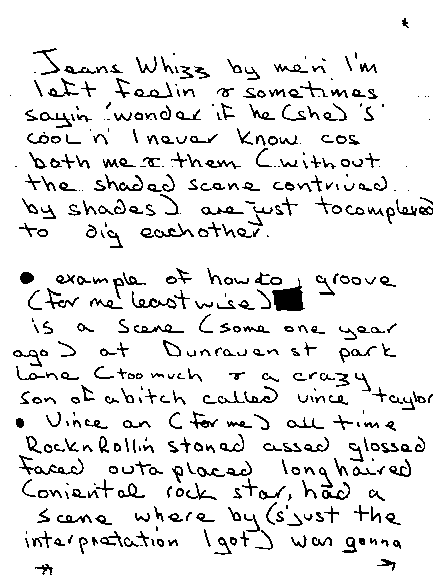 Jeans Whizz by me 'n' I'm
left feelin & sometimes
sayin' 'wonder if he (she) 'S'
cool 'n' I never know cos
both me & them (without
the shaded scene contrived
by shades) are just tocomplexed
to dig eachother.
● example of how to groove
(for me leastwise)
is a scene (some one year
ago) at Dunraven st park
Lane (too much & a crazy
son of a bitch called vince taylor
● Vince an (for me) all time
RocknRollin stoned assed glossed
faced outa placed longhaired
Coniental rock star, had a
scene where by (s'just the
interpretation I got) was gonna